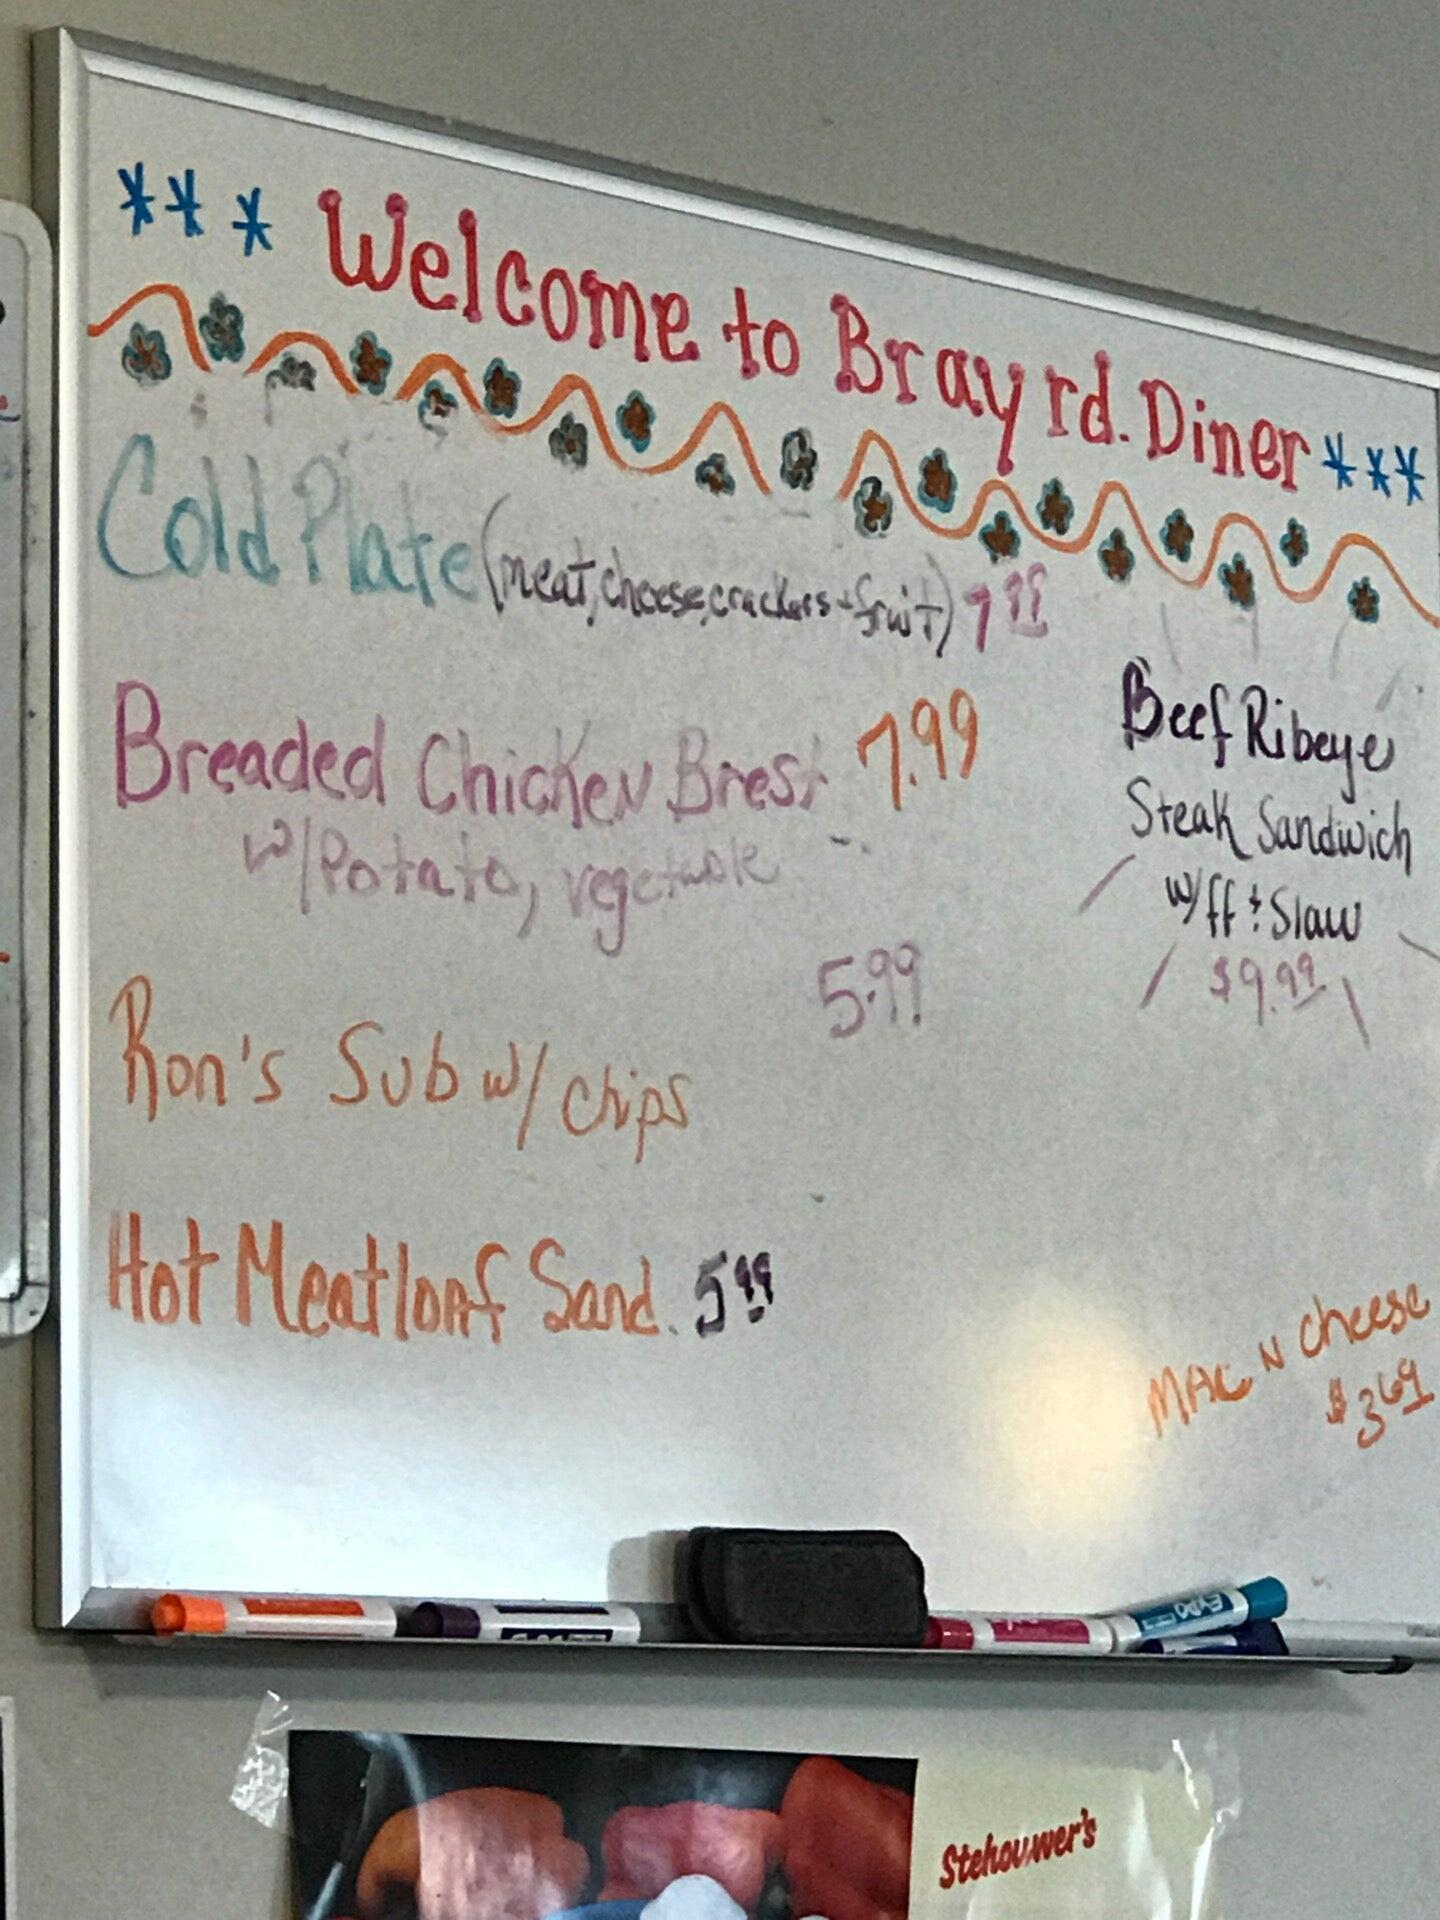 *** Welcome to Bray rd. Diner ***
Cold Plate (meat, cheese, crackers + fruit) 7 99
Breaded Chicken Brest 7.99
w/Potato, vegetable
5.99
Ron's Sub w/ chips
Hot Meatloaf Sand. 5 99
Beef Ribeye
Steak Sandwich
w/ff + Slaw
$9.99
MAC N cheese
$3 69
EXPO
Stehouwer's